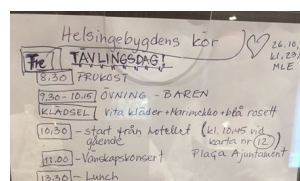 Helsingebygdens kör
Fre TÄVLINGSDAG!
26.10,
kl. 23
MLE
8:30 FRUKOST
9.30-10:15 ÖVNING - BAREN
KLÄDSEL Vita kläder + Marimekko + blå rosett
10,30 - start från hotellet (kl. 10:45 vid
gående karta nr 12)
Plaça Ajuntament
11.00 - Vänskapskonsert
13,30 - Lunch